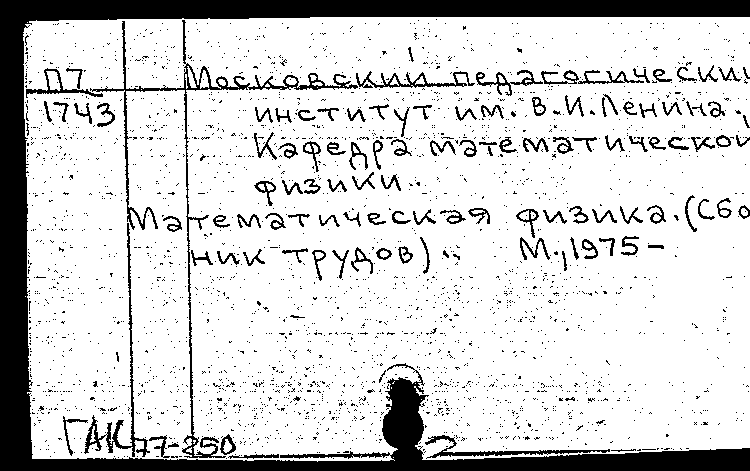 П7 Московский педагогически
1743 институт им. В.И.Ленина.
Кафедра математической
физики.
Математическая физика. (Сбо
ник трудов). М., 1975-
ГАК 77-250